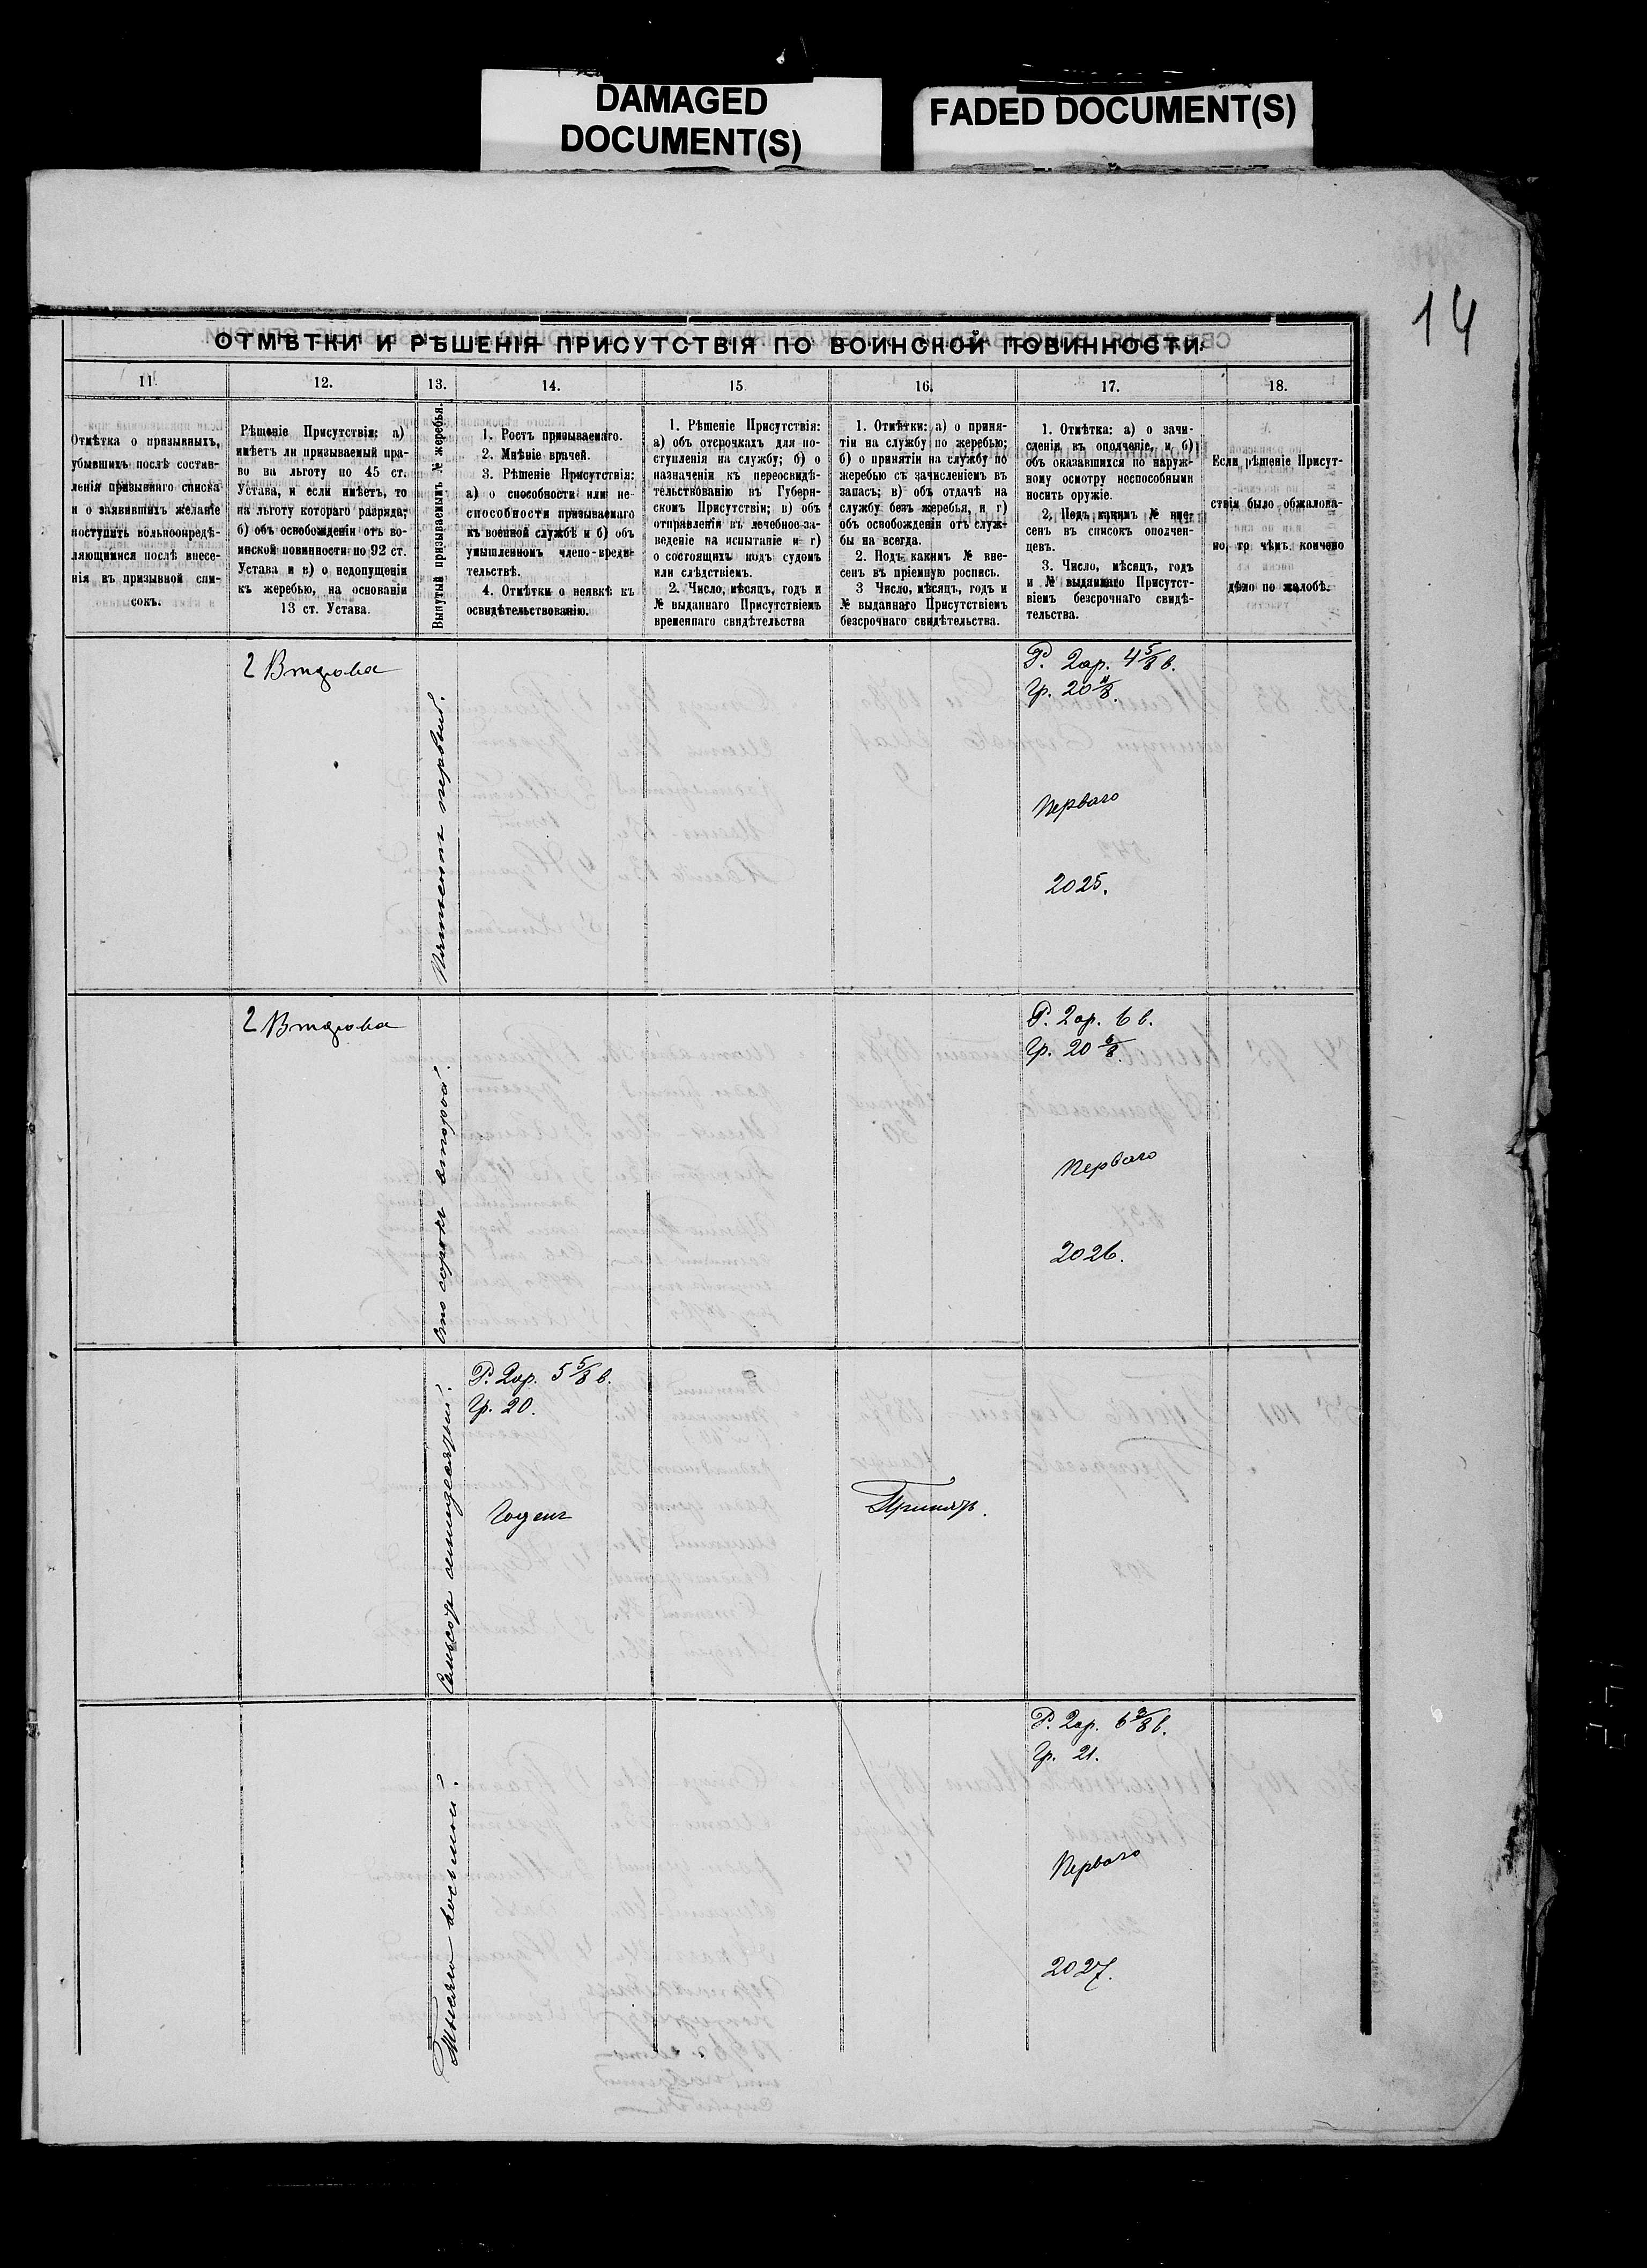 DAMAGED
DOCUMENT(S)
FADED DOCUMENT(S)
14
ОТМѢТКИ И РѢШЕНІЯ ПРИСУТСТВІЯ ПО ВОИНСКОЙ ПОВИННОСТИ.
11.
12.
13.
14.
15.
16.
17.
18.
Отмѣтка о призывныхъ,
убывшихъ послѣ состав-
ленія призывнаго списка
и о заявившихъ желаніе
поступить вольноопредѣ-
ляющимися послѣ внесе-
нія въ призывной спи-
сокъ.
Рѣшеніе Присутствія: а)
имѣетъ ли призываемый пра-
во на льготу по 45 ст.
Устава, и если имѣетъ, то
на льготу котораго разряда;
б) объ освобожденіи отъ во-
инской повинности по 92 ст.
Устава и в) о недопущеніи
къ жеребью, на основаніи
13 ст. Устава.
Вынутый призываемымъ № жеребья.
1. Ростъ призываемаго.
2. Мнѣніе врачей.
3. Рѣшеніе Присутствія:
а) о способности или не-
способности призываемаго
къ военной службѣ и б) объ
умышленномъ члено-вреди-
тельствѣ.
4. Отмѣтки о неявкѣ къ
освидѣтельствованію.
1. Рѣшеніе Присутствія:
а) объ отсрочкахъ для по-
ступленія на службу; б) о
назначеніи къ переосвидѣ-
тельствованію въ Губерн-
скомъ Присутствіи; в) объ
отправленіи въ лечебное за-
веденіе на испытаніе и г)
о состоящихъ подъ судомъ
или слѣдствіемъ.
2. Число, мѣсяцъ, годъ и
№ выданнаго Присутствіемъ
временнаго свидѣтельства
1. Отмѣтки: а) о приня-
тіи на службу по жеребью;
б) о принятіи на службу по
жеребью съ зачисленіемъ въ
запасъ; в) объ отдачѣ на
службу безъ жеребья, и г)
объ освобожденіи отъ служ-
бы на всегда.
2. Подъ какимъ № вне-
сенъ въ пріемную роспись.
3 Число, мѣсяцъ, годъ и
№ выданнаго Присутствіемъ
безсрочнаго свидѣтельства.
1. Отмѣтка: а) о зачи-
сленіи въ ополченіе, и б)
объ оказавшихся по наруж-
ному осмотру неспособными
носить оружіе.
2. Подъ какимъ № вне-
сенъ въ списокъ ополчен-
цевъ.
3. Число, мѣсяцъ, годъ
и № выданнаго Присутст-
віемъ безсрочнаго свидѣ-
тельства.
Если рѣшеніе Присут-
ствія было обжалова-
но, то чѣмъ кончено
дѣло по жалобѣ.
2 Втораго
Пятьсотъ первый.
Р. 2ар. 4 5/8 в.
Гр. 20 4/8
Перваго
2025.
2 Втораго
Сто сорокъ второй.
Р. 2ар. 6 в.
Гр. 20 6/8.
Перваго
2026.
Семьсотъ семидесятый.
Р. 2ар. 5 5/8 в.
Гр. 20.
Годенъ
Принятъ.
Тысяча восьмой.
Р. 2ар. 6 3/8 в.
Гр. 21.
Перваго
2027.